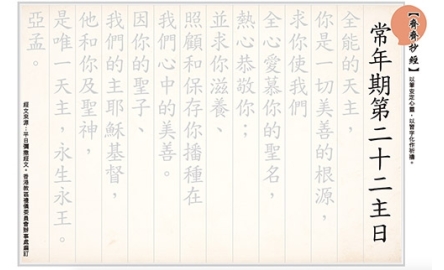 【齊齊抄經】
以筆安定心靈,以習字化作祈禱。
常年期第二十二主日
全能的天主,
你是一切美善的根源,
求你使我們
全心愛慕你的聖名,
熱心恭敬你;
並求你滋養、
照顧和保存你播種在
我們心中的美善。
因你的聖子、
我們的主耶穌基督,
他和你及聖神,
是唯一天主,永生永王。
亞孟。
經文來源:平日彌撒經文。香港教區禮儀委員會辦事處編訂